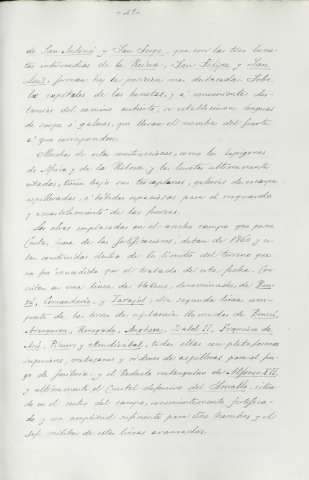 de San Antonio y San Jorge, que con las tres lunetas
intermedias de la Reina, San Felipe y San
Luis, forman hoy la posición más destacada. Sobre
las capitales de las lunetas, y a conveniente distancia
del camino cubierto, se establecieron
de o galeras, que llevan el nombre del fuerte
a que corresponden.
Muchas de estas construcciones, como los
de África y de la Ribera y las lunetas últimamente
citadas, tienen bajo sus terraplenes, galerías de escarpa
aspilleradas, o bóvedas espaciosas para el resguardo
y acuartelamiento de las fuerzas.
Las obras emplazadas en el ancho campo que posee
Ceuta, fuera de las fortificaciones, datan de 1860 y están
contenidas dentro de los límites del terreno que
se ha concedido por el tratado de esta fecha. Consisten
en una línea de blokaus, denominados de
Comandería, y Tarajal; otra segunda línea compuesta
de las torres de vigilancia llamadas de
Aranguren, Renegado, Anghera, Isabel II, Francisco de
Asís, Piniers y Mendizabal, todas ellas con plataformas
superiores, matacanes y órdenes de aspilleras para el fuego
de fusilería; y el Reducto rectangular de Alfonso XII,
y últimamente el Cuartel defensivo del Serrallo, situado
en el centro del campo, convenientemente fortificado
y con amplitud suficiente para hombres y el
Jefe militar de estas líneas avanzadas.